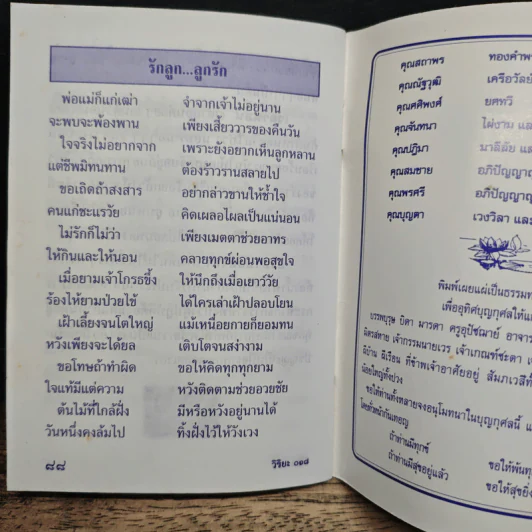 รักลูก...ลูกรัก
พ่อแม่ก็แก่เฒ่า จำจากเจ้าไม่อยู่นาน
จะพบจะพ้องพาน เพียงเสี้ยววารของคืนวัน
ใจจริงไม่อยากจาก เพราะยังอยากเห็นลูกหลาน
แต่ชีพมิทนทาน ต้องร้าวรานสลายไป
ขอเถิดถ้าสงสาร อย่ากล่าวขานให้ช้ำใจ
คนแก่ชะแรวัย คิดเผลอไผลเป็นแน่นอน
ไม่รักก็ไม่ว่า เพียงเมตตาช่วยอาทร
ให้กินและให้นอน คลายทุกข์ผ่อนพอสุขใจ
เมื่อยามเจ้าโกรธขึ้ง ให้นึกถึงเมื่อเยาว์วัย
ร้องไห้ยามป่วยไข้ ได้ใครเล่าเฝ้าปลอบโยน
เฝ้าเลี้ยงจนโตใหญ่ แม้เหนื่อยกายก็ยอมทน
หวังเพียงจะได้ยล เติบโตจนสง่างาม
ขอโทษถ้าทำผิด ขอให้คิดทุกทุกยาม
ใจแท้มีแต่ความ หวังติดตามช่วยอวยชัย
ต้นไม้ที่ใกล้ฝั่ง มีหรือหวังอยู่นานได้
วันหนึ่งคงล้มไป ทิ้งฝั่งไว้ให้วังเวง
๘๘ วิริยะ ๐๑๘
คุณสถาพร ทองคำพร
คุณณัฐวุฒิ เครือวัลย์
คุณศศิพงศ์ ยศทวี
คุณจันทนา ไผ่งาม แล
คุณปฏิมา นาลิลัย แล
คุณสมชาย อภิปัญญาญ
คุณพรศรี อภิปัญญาญ
คุณบุญตา เวงวิลา และ
พิมพ์เผยแผ่เป็นธรรมท
เพื่ออุทิศบุญกุศลให้แก
บรรพบุรุษ บิดา มารดา ครูอุปัชฌาย์ อาจาร
มิตรสหาย เจ้ากรรมนายเวร เจ้าเกณฑ์ชะตา เ
ผีบ้าน ผีเรือน ที่ข้าพเจ้าอาศัยอยู่ สัมภเวสีทั้
น้อยใหญ่ทั้งปวง
ขอให้ท่านทั้งหลายจงอนุโมทนาในบุญกุศลนี้ แ
โดยทั่วหน้ากันเทอญ
ถ้าท่านมีทุกข์ ขอให้พ้นทุ
ถ้าท่านมีสุขอยู่แล้ว ขอให้สุขยิ่ง